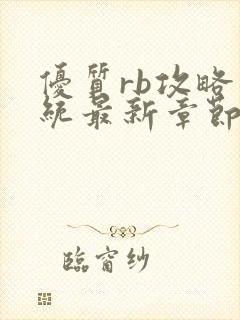 優質rb攻略
統最新章節
臨窗紗